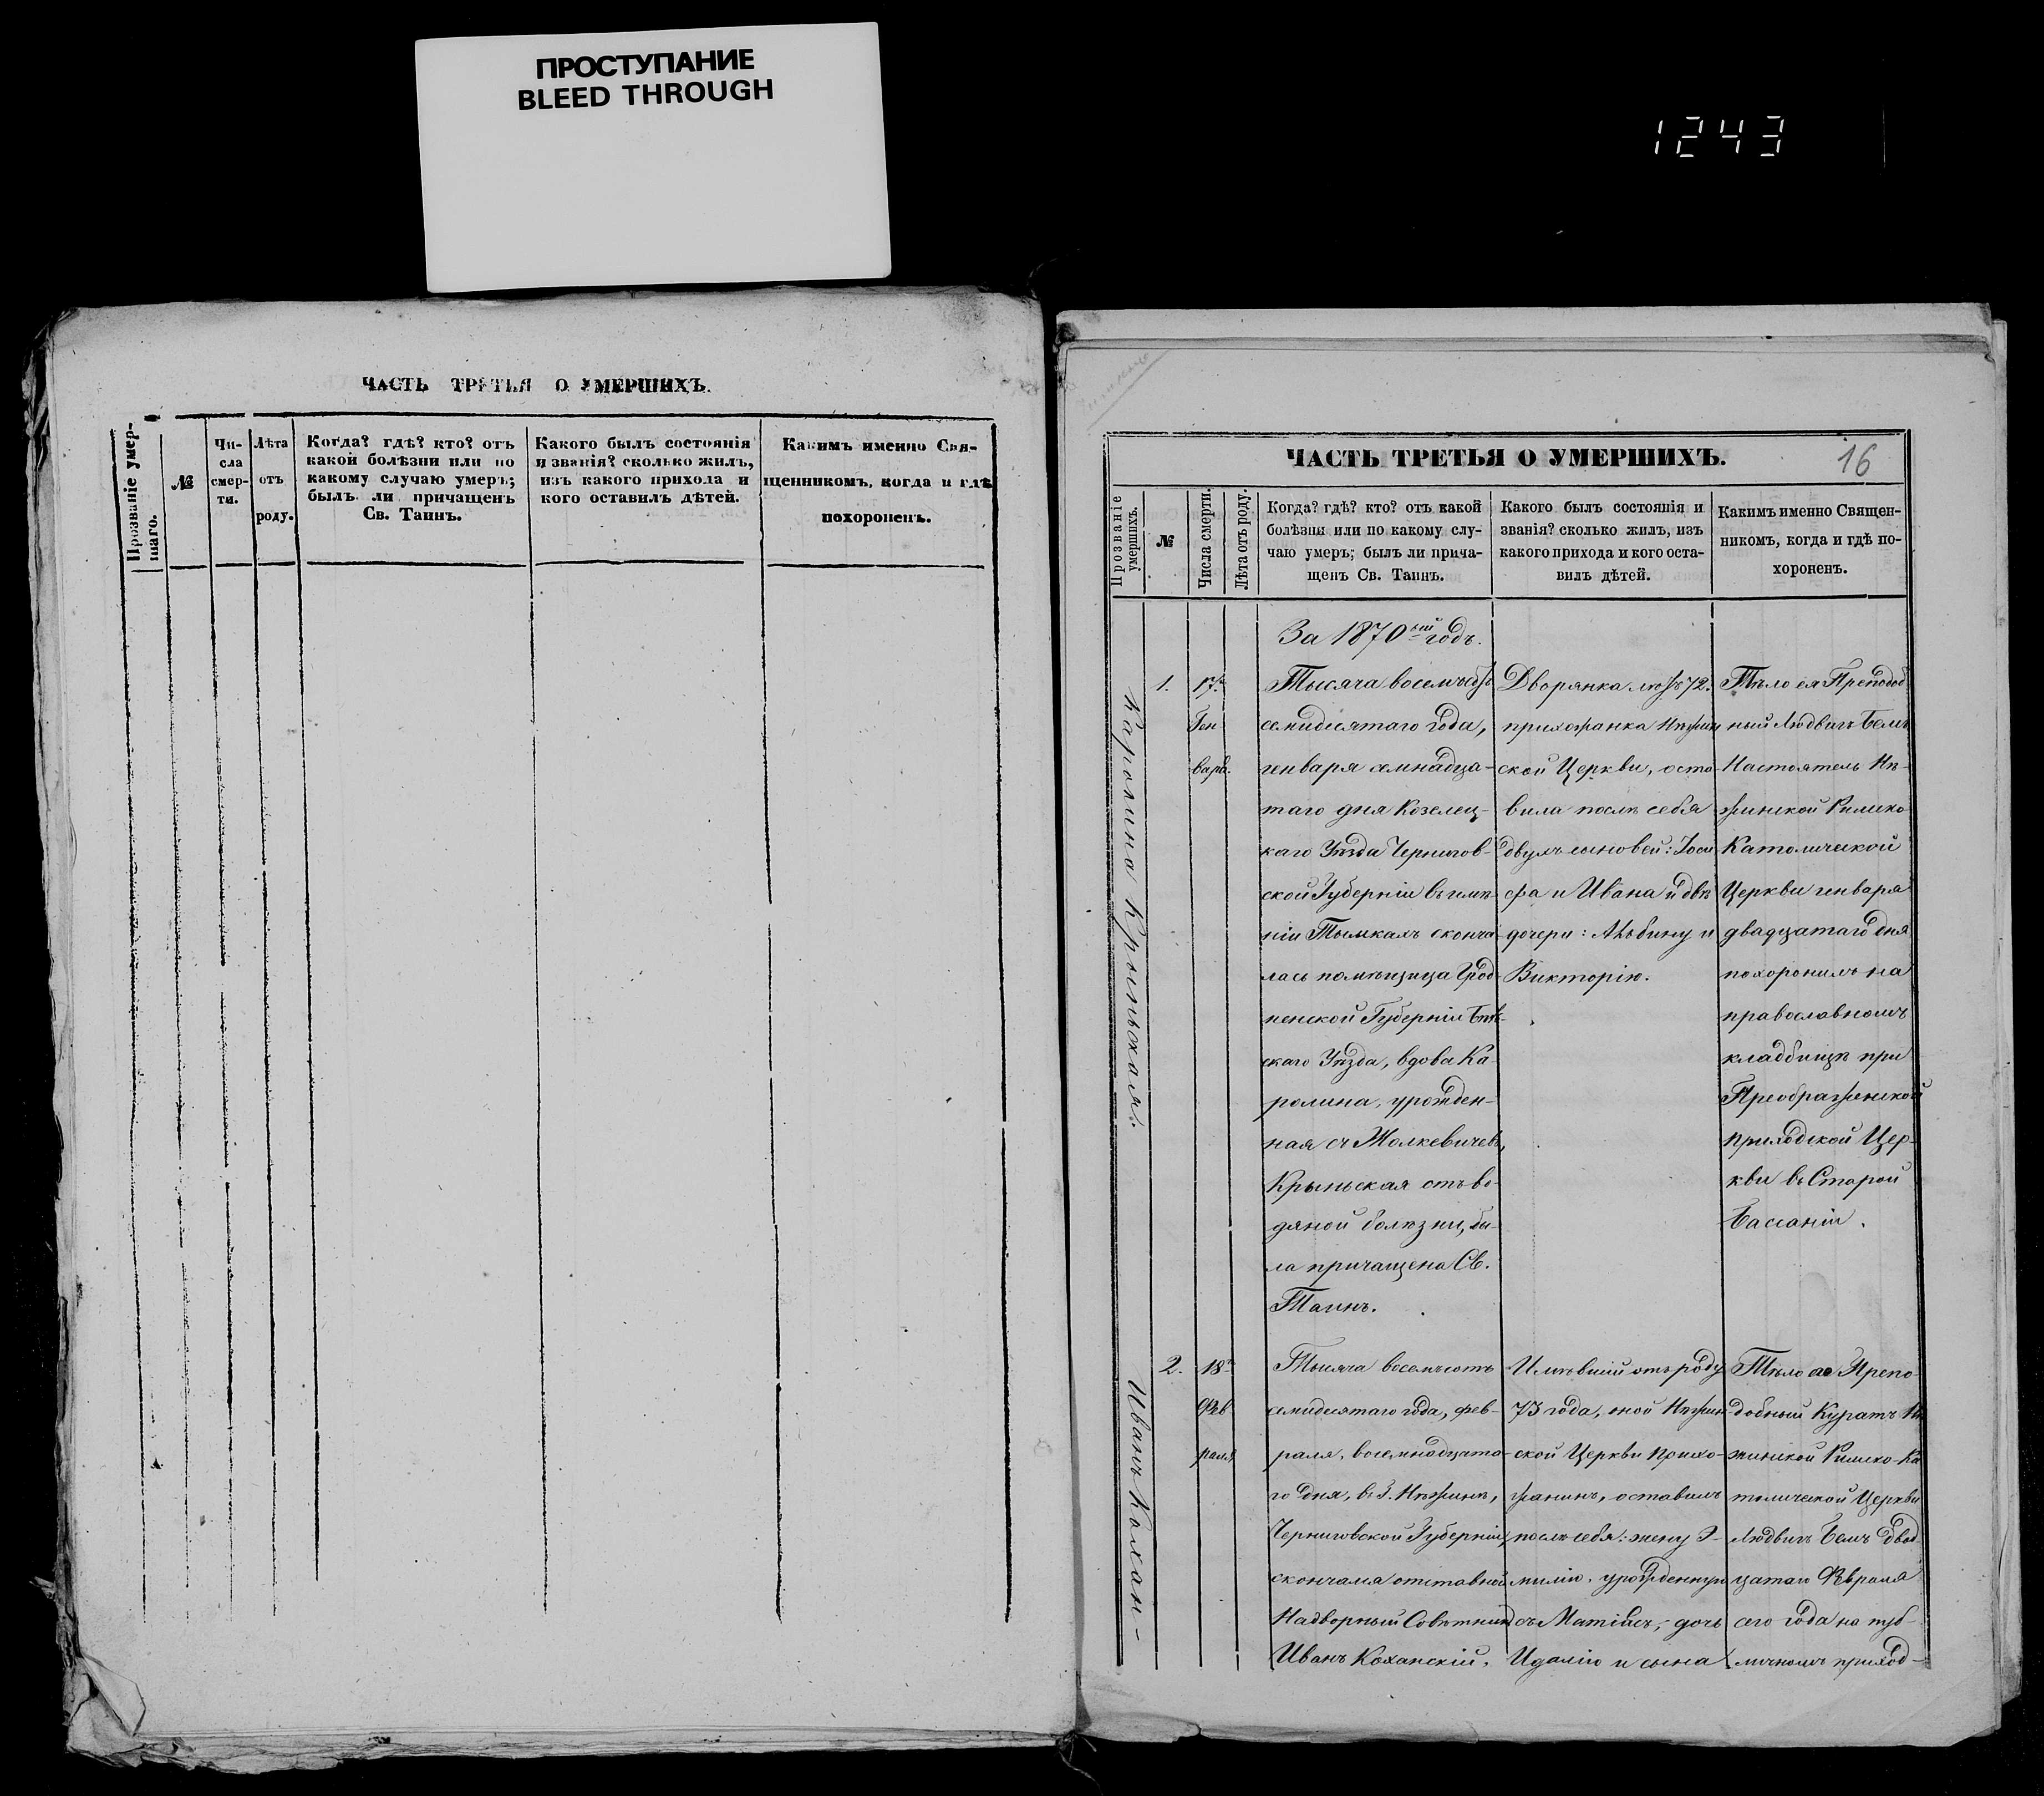 ПРОСТУПАНИЕ
BLEED THROUGH
1243
ЧАСТЬ ТРЕТЬЯ О УМЕРШИХЪ.
Прозваніе умер-
шаго.
№
Чи-
сла
смер-
ти.
Лѣта
отъ
роду.
Когда? гдѣ? кто? отъ
какой болѣзни или по
какому случаю умеръ;
былъ ли причащенъ
Св. Таинъ.
Какого былъ состоянія
и званія? сколько жилъ,
изъ какого прихода и
кого оставилъ дѣтей.
Какимъ именно Свя-
щенникомъ, когда и гдѣ
похороненъ.
ЧАСТЬ ТРЕТЬЯ О УМЕРШИХЪ.
16
Прозваніе
умершихъ.
№
Числа смерти.
Лѣта отъ роду.
Когда? гдѣ? кто? отъ какой
болѣзни или по какому слу-
чаю умеръ; былъ ли прича-
щенъ Св. Таинъ.
Какого былъ состоянія и
званія? сколько жилъ, изъ
какого прихода и кого оста-
вилъ дѣтей.
Какимъ именно Священ-
никомъ, когда и гдѣ по-
хороненъ.
Каролина Крыньская.
1.
17.
Ген
варя.
За 1870ый годъ.
Тысяча восемьсотъ
семидесятаго года,
генваря семнадца-
таго дня Козелец-
каго Уѣзда Чернигов-
ской Губерніи въ имѣ-
ніи Тымкахъ сконча
лась помѣщица Грод-
ненской Губерніи
скаго Уѣзда, вдова Ка-
ролина, урожден-
ная съ Жолкевичевъ,
Крыньская отъ во-
дяной болѣзни, бы-
ла причащена Св.
Таинъ.
Дворянка лѣтъ 72.
прихожанка Нѣжин
ской Церкви, оста-
вила послѣ себя
двухъ сыновей: Іоси
фа и Ивана и двѣ
дочери: Альбину и
Викторію.
Тѣло ея Преподоб
ный Людвигъ Бемъ
Настоятель Нѣ-
жинской Римско
Католической
Церкви генваря
двадцатаго дня
похоронилъ на
православномъ
кладбищѣ при
Преображенской
приходской Цер-
кви въ Старой
Бассани.
Иванъ Кохан-
2.
18
Фев
раля
Тысяча восемьсотъ
семидесятаго года, фев-
раля, восемнадцата-
го дня, въ г. Нѣжинѣ,
Черниговской Губерніи,
скончался отставной
Надворный Совѣтникъ
Иванъ Коханскій,
Имѣвшій отъ роду
73 года, оной Нѣжин
ской Церкви прихо-
жанинъ, оставилъ
послѣ себя: жену Э-
милію, урожденную
съ Матіасъ, дочь
Идалію и сына
Тѣло его Препо-
добный Куратъ Нѣ
жинской Римско-Ка
толической Церкви
Людвигъ Бемъ двад-
цатаго Февраля
сего года на пуб-
личномъ приход-